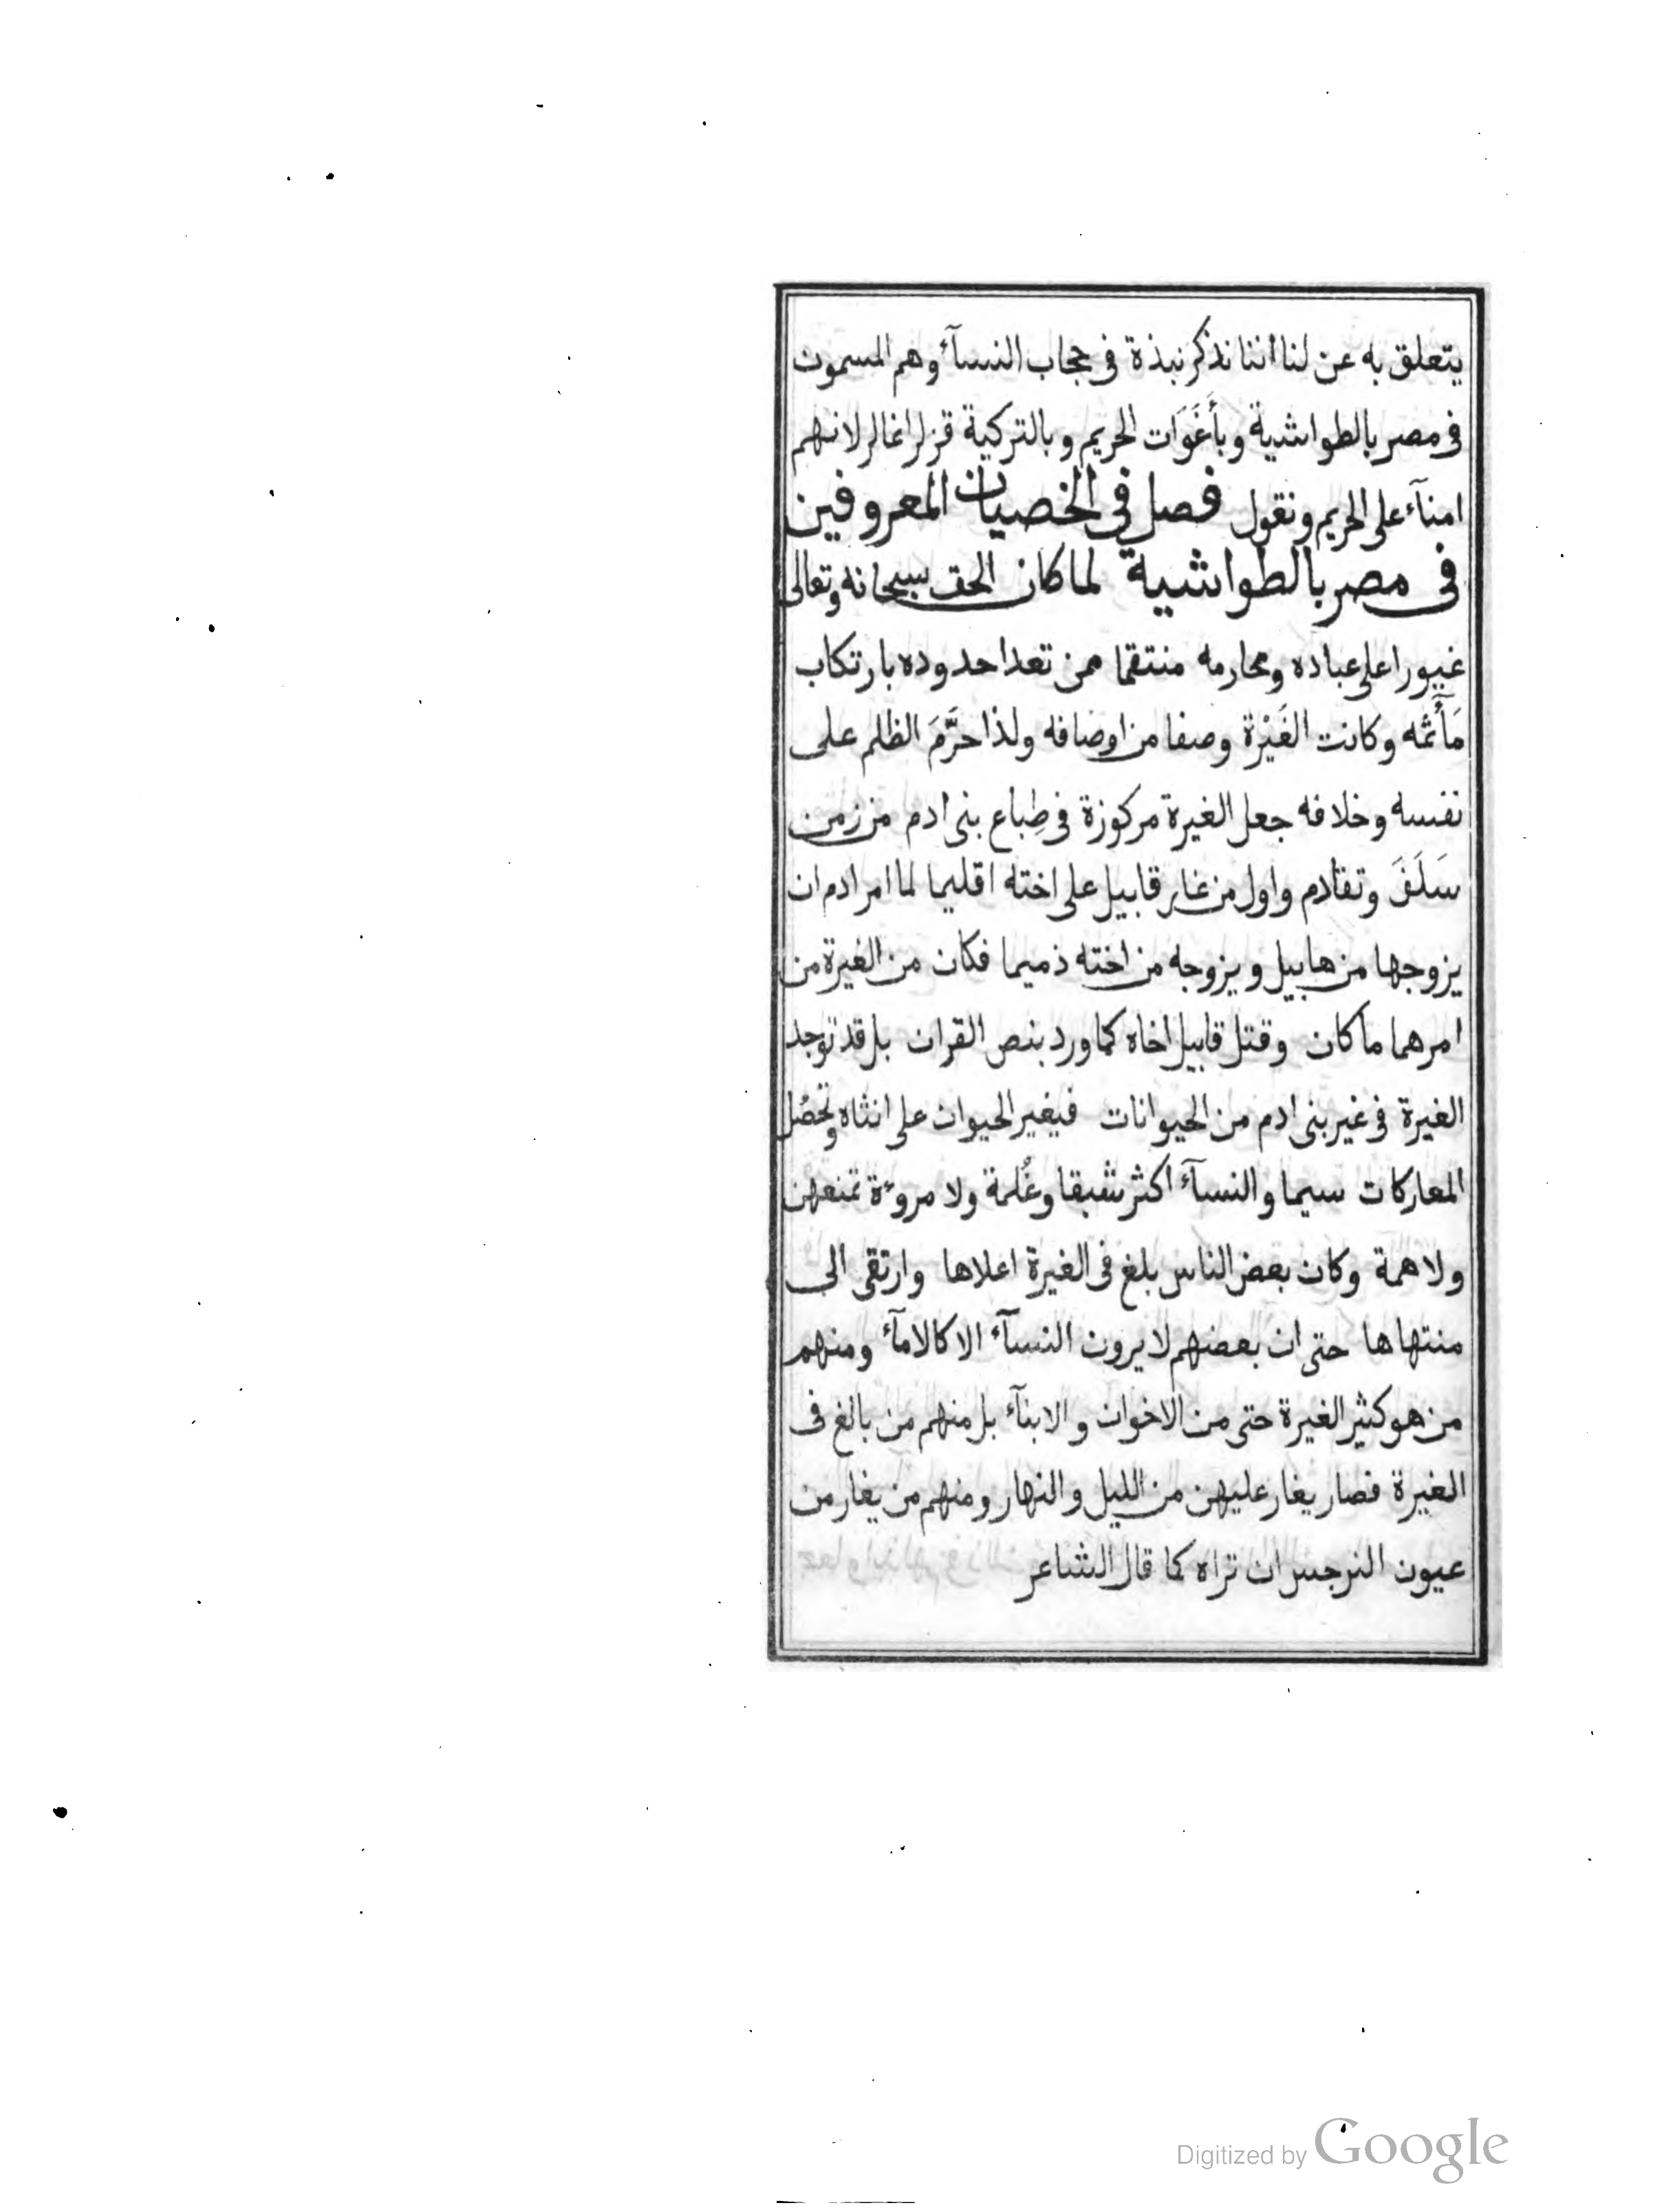 يتعلق به عن لنا اننا نذكر نبذة فى حجاب النسآء وهم المسمون
فى مصر بالطواشية وبأَغَوَات الحريم وبالتركية قزلراغالر لانهم
امنآء على الحريم ونقول فصل فى الخصيان المعروفين
فى مصر بالطواشية لما كان الحق سبحانه وتعالى
غيورا على عباده ومحارمه منتقما ممن تعدا حدوده بارتكاب
مَأَثمه وكانت الغَيْرة وصفا من اوصافه ولذا حرَّمَ الظلم على
نفسه وخلافه جعل الغيرة مركوزة فى طِباع بنى ادم من زمن
سَلَفَ وتقادم واول من غار قابيل على اخته اقليما لما امر ادم ان
يزوجها من هابيل ويزوجه من اخته ذميما فكان من الغيرة من
امرهما ما كان وقتل قابيل اخاه كما ورد بنص القران بل قد توجد
الغيرة فى غير بنى ادم من الحيوانات فيغير الحيوان على انثاه وتحصُل
المعاركات سيما والنسآء اكثر شبقا وغُلمة ولا مروءة تمنعهن
ولا همة وكان بعض الناس بلغ فى الغيرة اعلاها وارتقى الى
منتهاها حتى ان بعضهم لا يرون النسآء الا كالامآء ومنهم
من هو كثير الغيرة حتى من الاخوان والابنآء بل منهم من بالغ فى
الغيرة فصار يغار عليهن من الليل والنهار ومنهم من يغار من
عيون النرجس ان تراه كما قال الشاعر
Digitized by Google